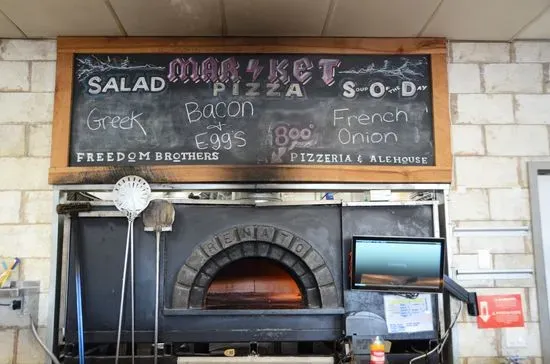 MARKET
PIZZA
SALAD
SOUP OF THE DAY
Greek
Bacon
+
Egg's
800°
French
Onion
FREEDOM BROTHERS
PIZZERIA & ALEHOUSE
RENATO